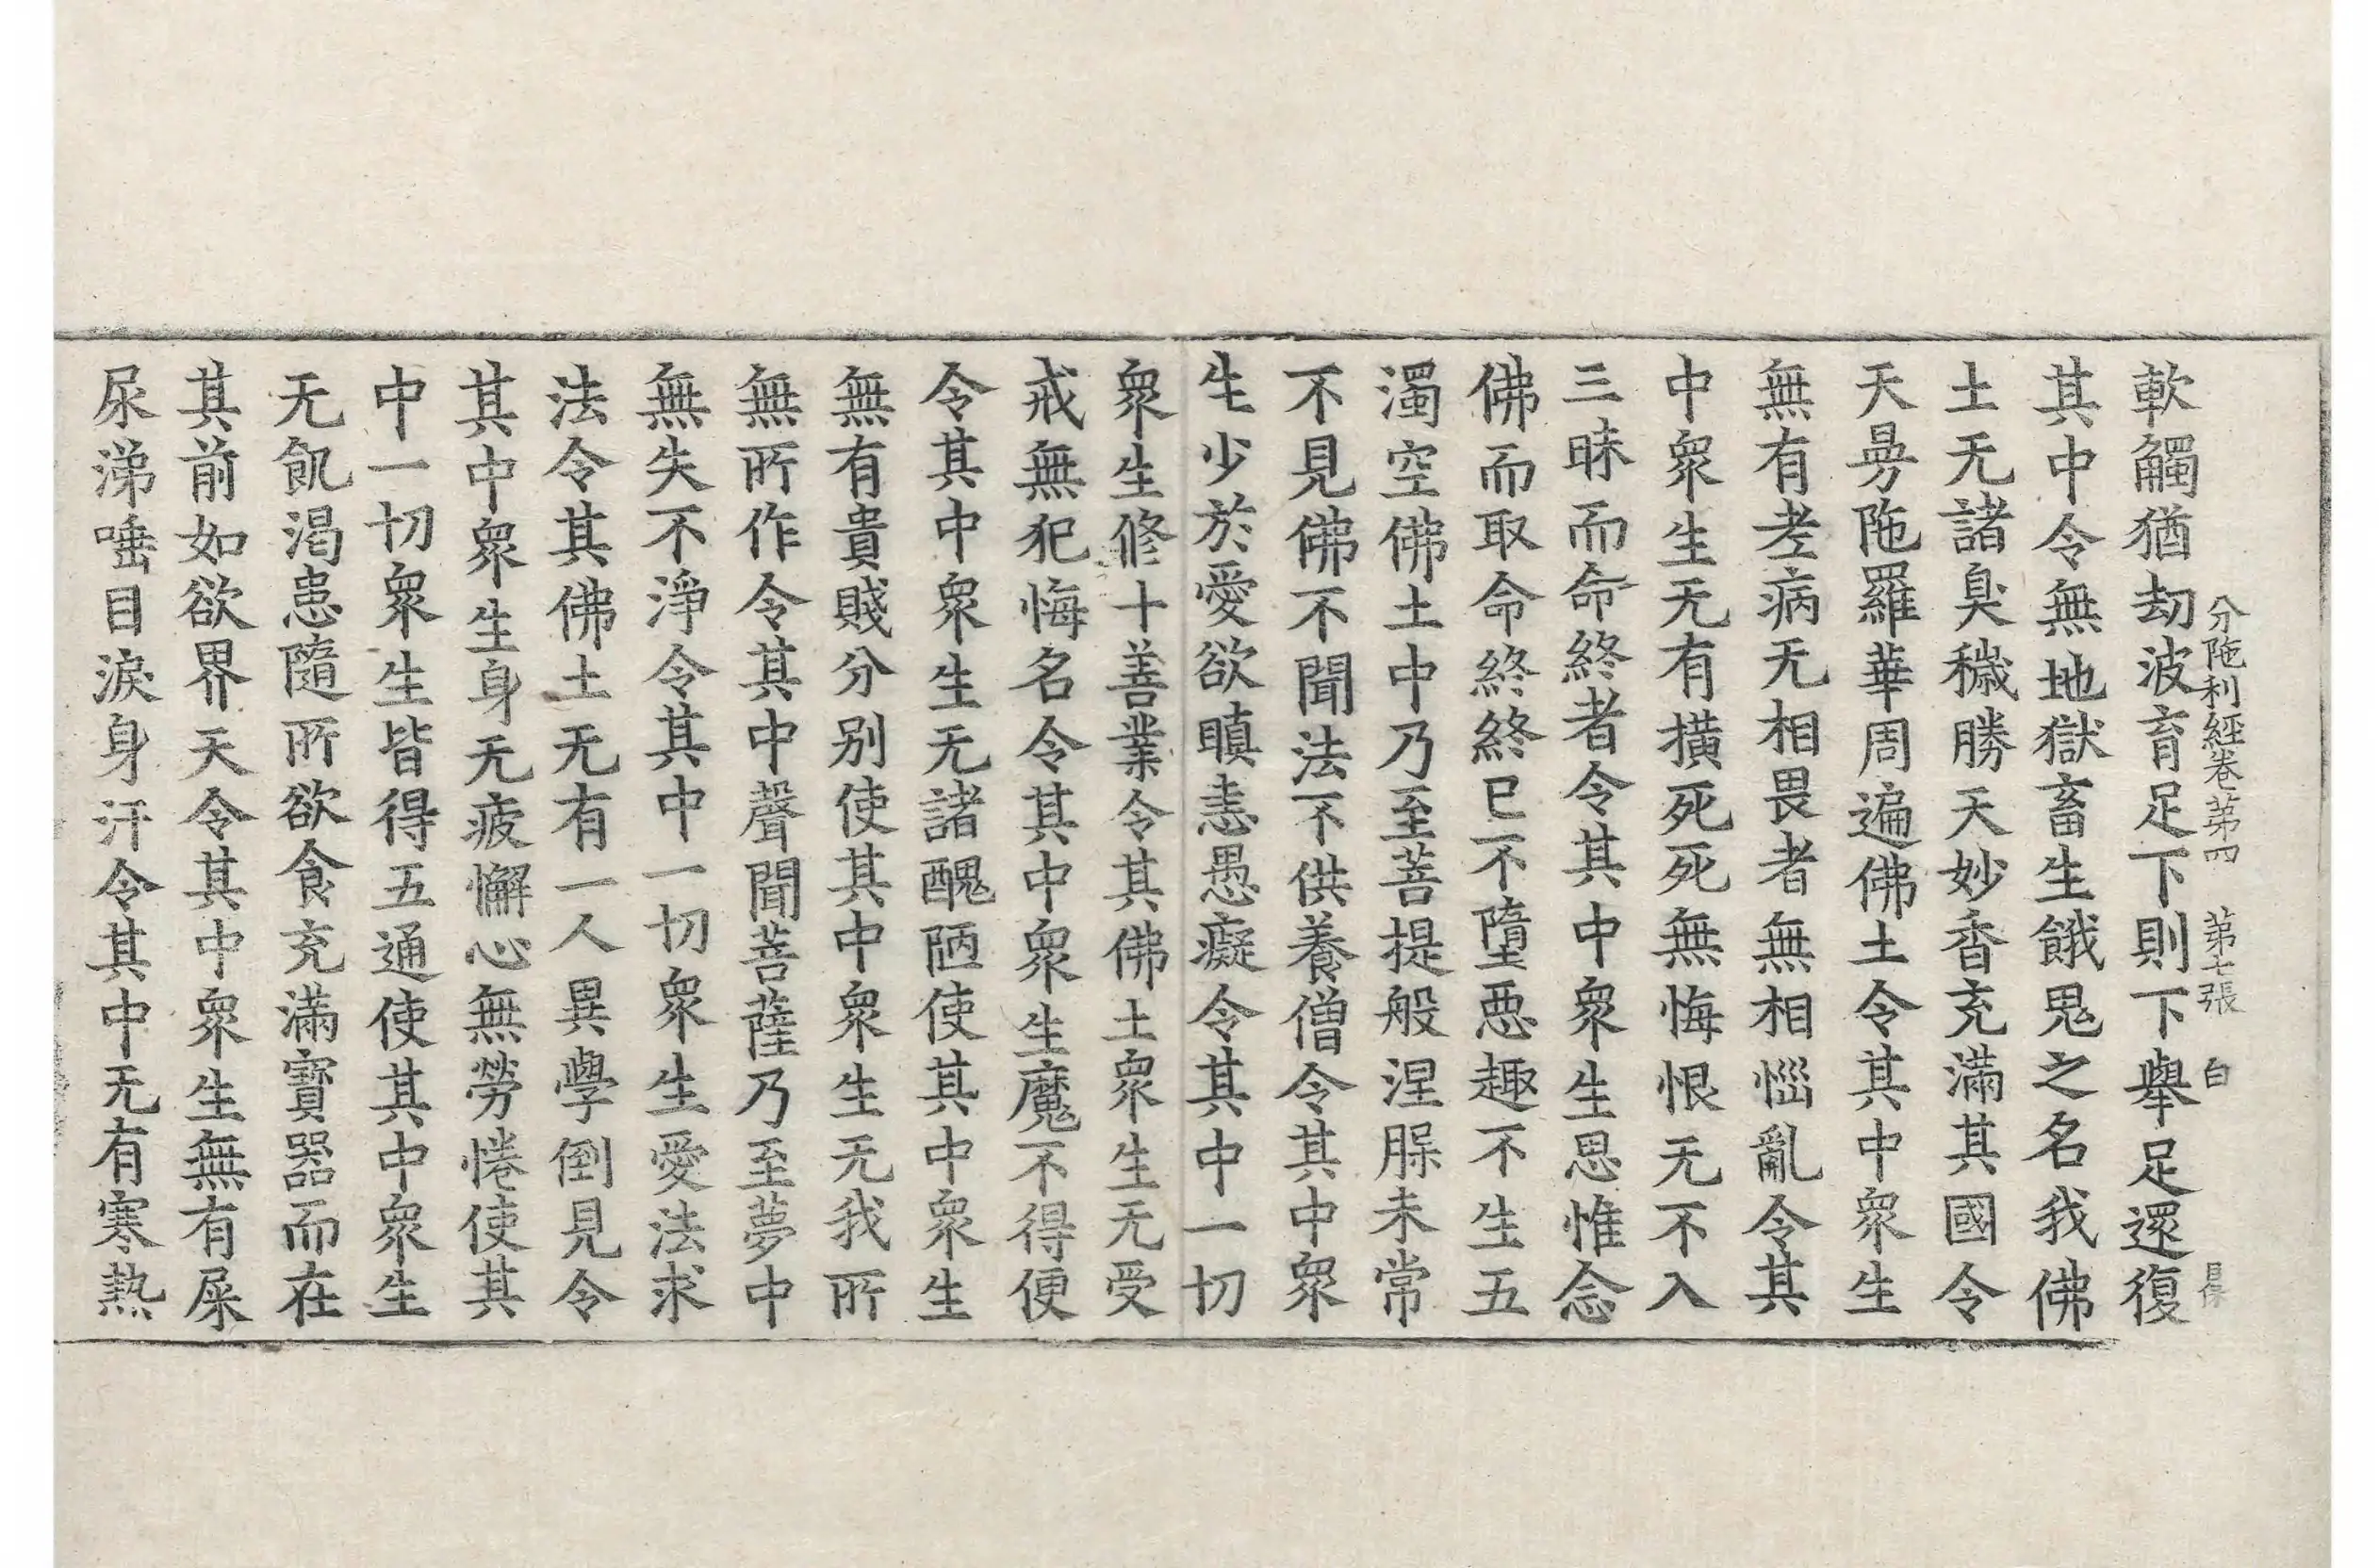 分陁利經卷苐四　苐七張　白
軟觸猶劫波育足下則下舉足還復
其中令無地獄畜生餓鬼之名我佛
土无諸臭穢勝天妙香充滿其國令
天曼陁羅華周遍佛土令其中衆生
無有老病无相畏者無相惱亂令其
中衆生无有橫死死無悔恨无不入
三昧而命終者令其中衆生思惟念
佛而取命終終已不墮惡趣不生五
濁空佛土中乃至菩提般涅槃未常
不見佛不聞法不供養僧令其中衆
生少於愛欲瞋恚愚癡令其中一切
衆生修十善業令其佛土衆生无受
戒無犯悔名令其中衆生魔不得便
令其中衆生无諸醜陋使其中衆生
無有貴賤分別使其中衆生无我所
無所作令其中聲聞菩薩乃至夢中
無失不淨令其中一切衆生愛法求
法令其佛土无有一人異學倒見令
其中衆生身无疲懈心無勞惓使其
中一切衆生皆得五通使其中衆生
无飢渴患隨所欲食充滿寶器而在
其前如欲界天令其中衆生無有屎
尿涕唾目淚身汗令其中无有寒熱